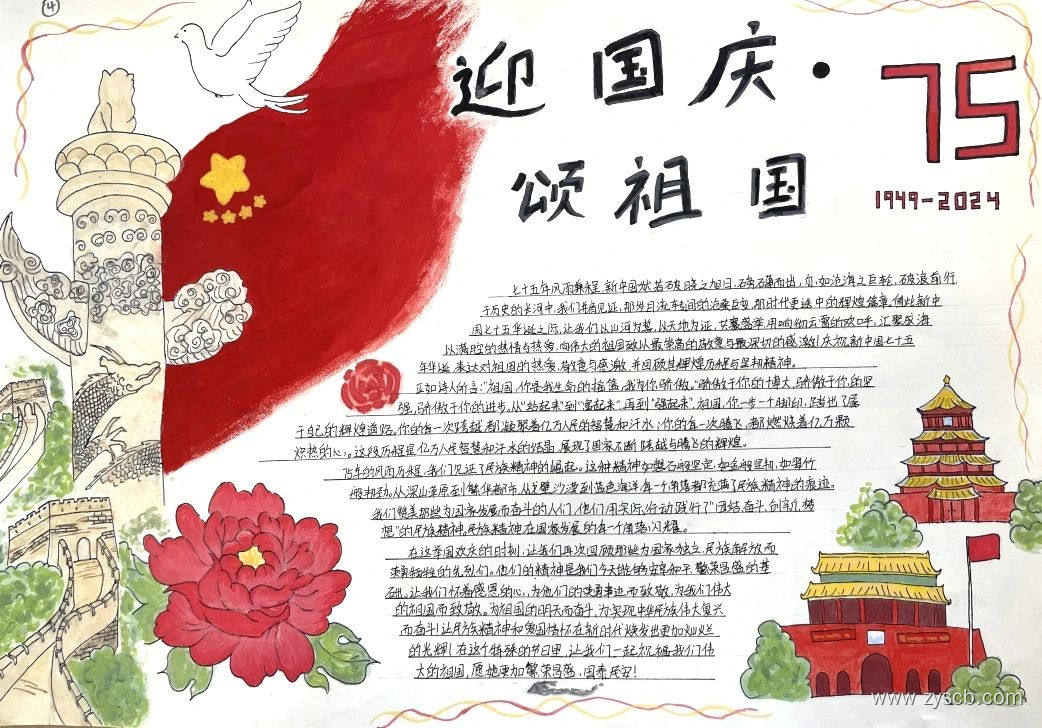 ④
迎国庆·75
颂祖国
1949-2024
七十五年风雨兼程,新中国犹若破晓之旭日,磅礴而出,亦如沧海之巨轮,破浪前行.
于历史的长河中,我们共同见证,那岁月流转间的沧桑巨变,那时代更迭中的辉煌篇章,值此新中
国七十五华诞之际,让我们以山河为笔,从天地为证,共襄盛举,用响彻云霄的欢呼,汇聚成海
以满腔的热情与热爱,向伟大的祖国致以最崇高的敬意与最深切的感激!庆祝新中国七十五
年华诞,表达对祖国的热爱、敬意与感激,并回顾其辉煌历程与坚韧精神。
正如诗人所言:"祖国,你是我生命的摇篮,我为你骄傲。"骄傲于你的博大,骄傲于你的坚
强,骄傲于你的进步,从"站起来"到"富起来",再到"强起来",祖国,你一步一个脚印,踏出了属
于自己的辉煌道路,你的每一次跨越,都凝聚着亿万人民的智慧和汗水;你的每一次腾飞,都燃烧着亿万颗
炽热的心。这段历程是亿万人民智慧和汗水的结晶,展现了国家不断跨越与腾飞的辉煌。
75年的风雨历程,我们见证了民族精神的崛起。这种精神如磐石般坚定,如金般坚韧,如翠竹
般挺劲,从深山草原到繁华都市,从戈壁沙漠到蓝色海洋,每一个角落都充满了民族精神的痕迹。
我们赞美那些为国家发展而奋斗的人们,他们用实际行动践行了"团结、奋斗、创新、梦
想"的民族精神,民族精神在国家发展的每一个角落闪耀。
在这举国欢庆的时刻,让我们再次回顾那些为国家独立、民族解放而
英勇牺牲的先烈们。他们的精神是我们今天能够安享和平、繁荣昌盛的基
础。让我们怀着感恩的心,为他们的英勇事迹而致敬,为我们伟大
的祖国而致敬。为祖国的明天而奋斗,为实现中华民族伟大复兴
而奋斗!让民族精神和爱国情怀在新时代焕发出更加灿烂
的光辉!在这个特殊的节日里,让我们一起祝福我们伟
大的祖国,愿她更加繁荣昌盛,国泰民安!
www.zyscb.com